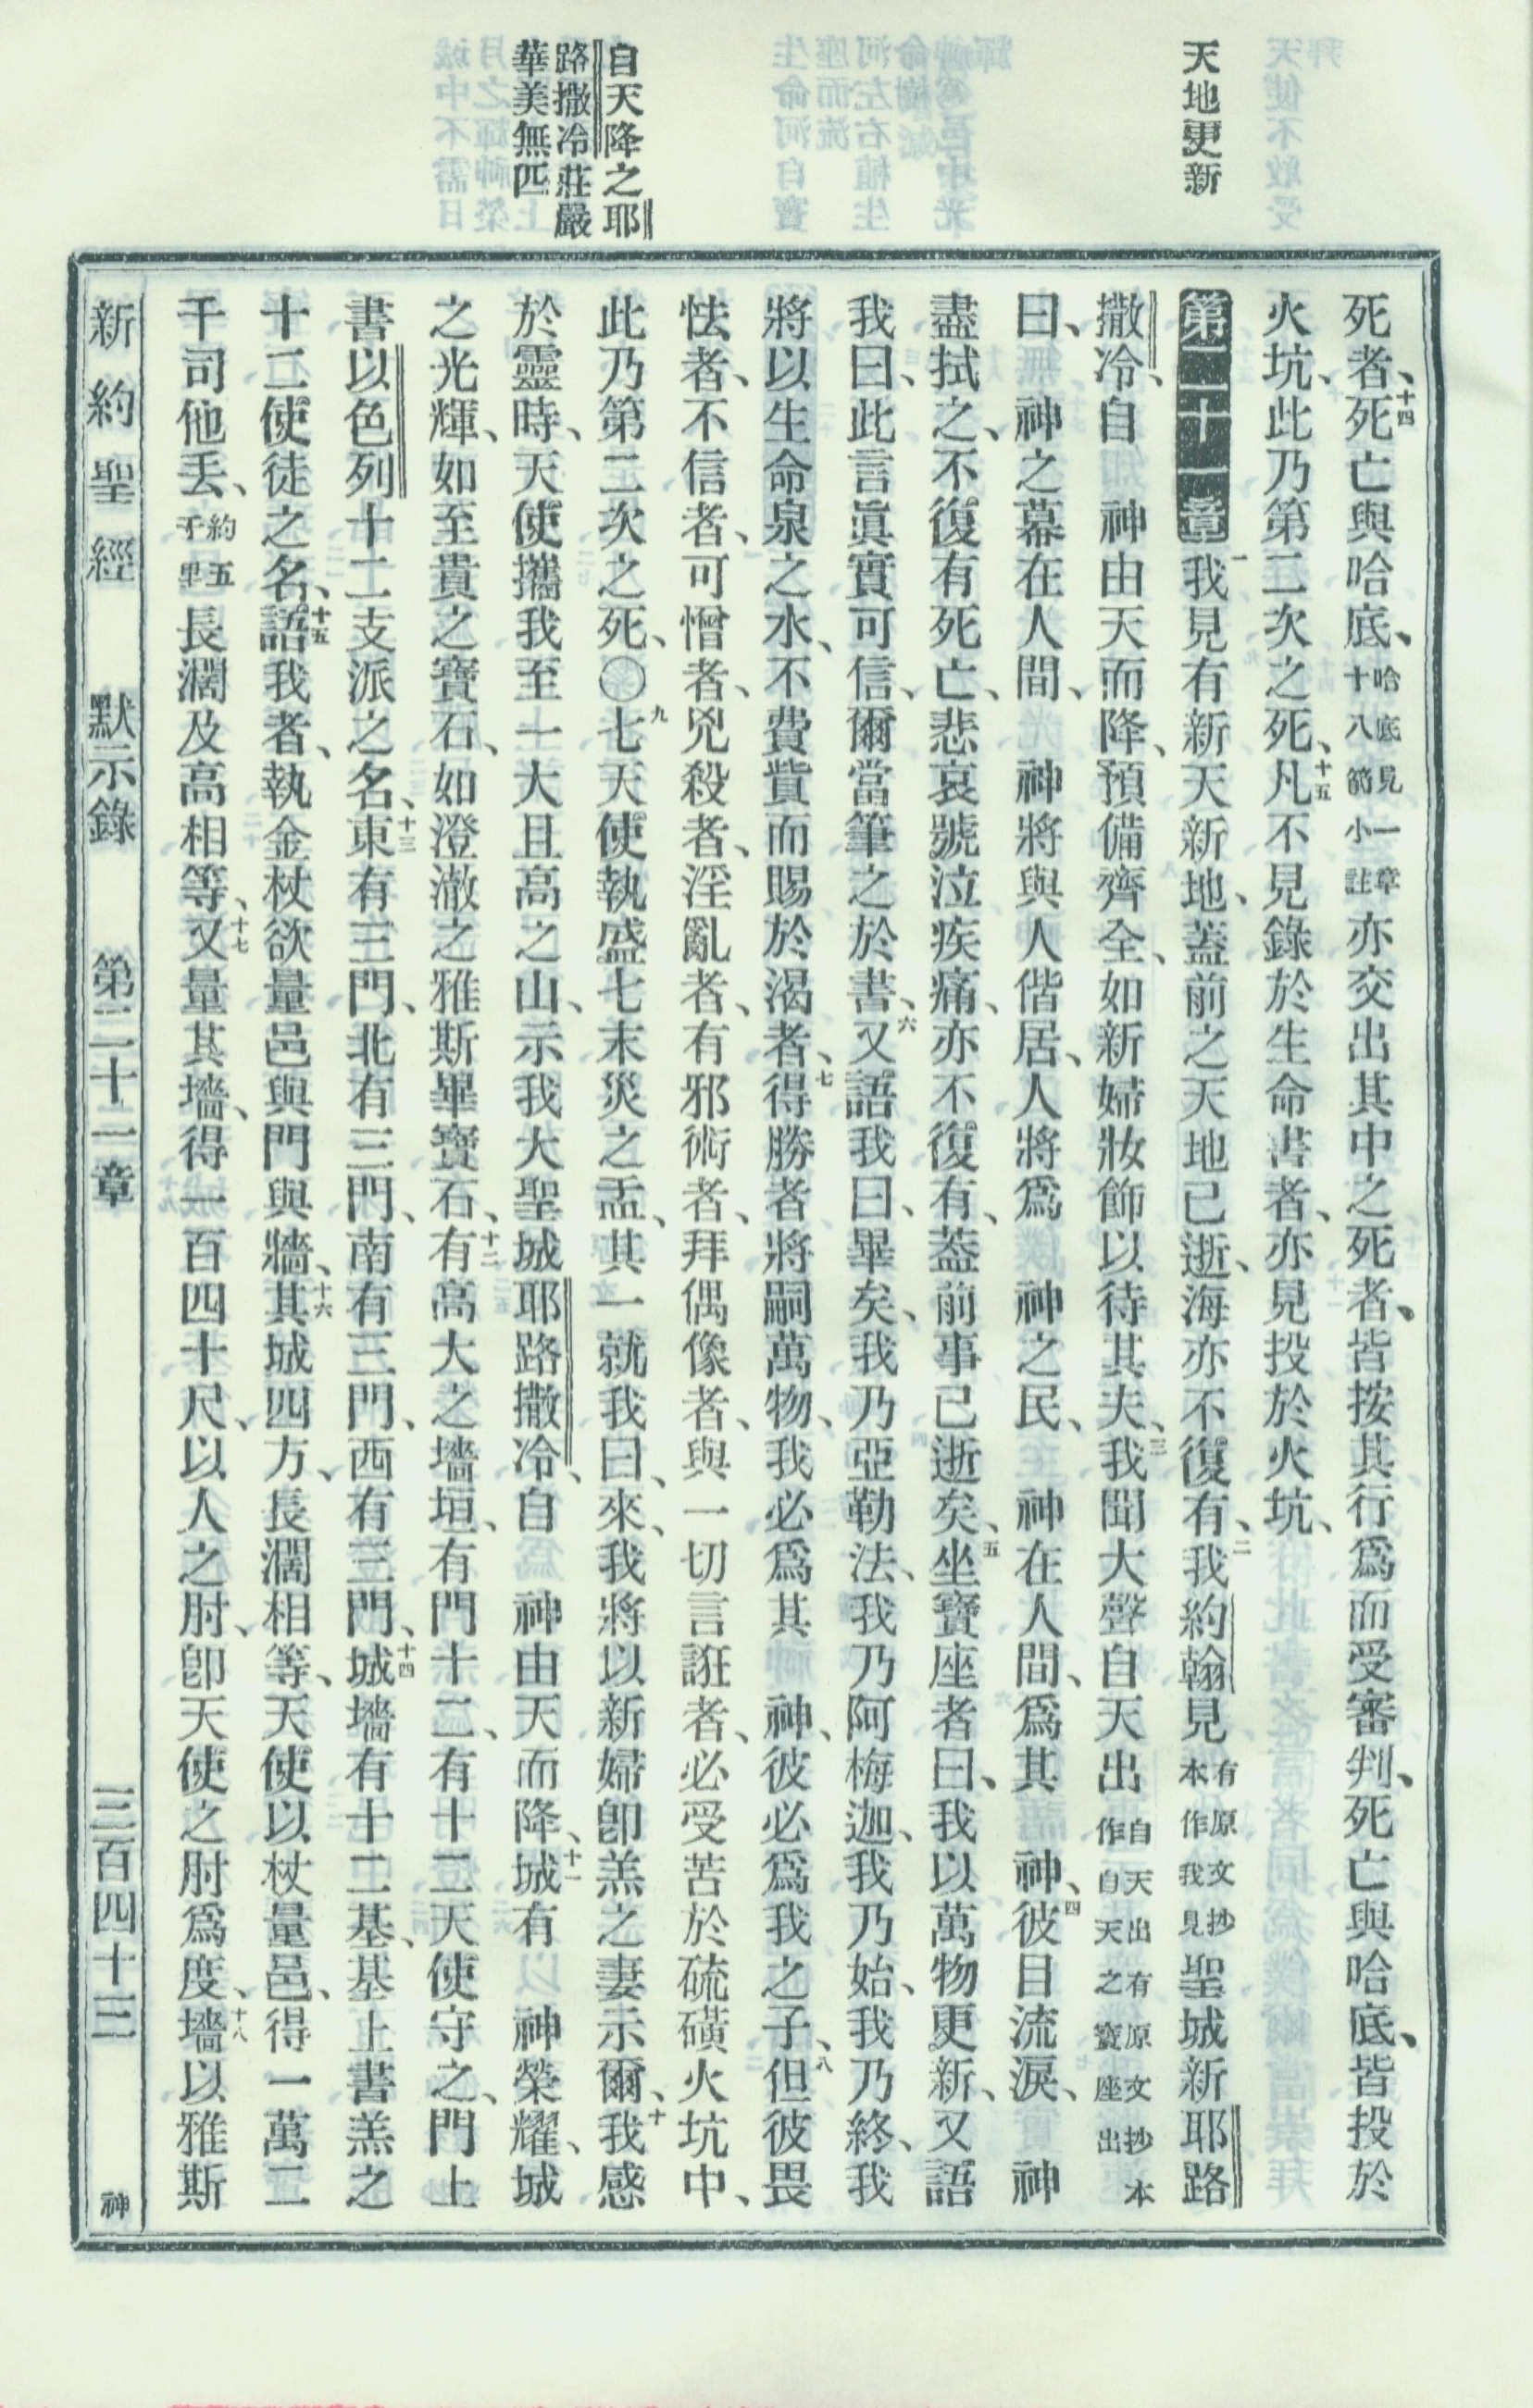 天地更新
自天降之耶
路撒冷莊嚴
華美無匹
死者、十四死亡與哈底、哈底見一章十八節小註亦交出其中之死者、皆按其行爲而受審判、死亡與哈底、皆投於
火坑、此乃第二次之死、十五凡不見錄於生命書者、亦見投於火坑、
第二十一章一我見有新天新地、蓋前之天地已逝、海亦不復有、二我約翰見有原文抄本作我見聖城新耶路
撒冷、自 神由天而降、預備齊全、如新婦妝飾以待其夫、三我聞大聲自天出自天出有原文抄本作自天之寶座出
曰、 神之幕在人間、 神將與人偕居、人將爲 神之民、 神在人間、爲其 神、四彼目流淚、 神
盡拭之、不復有死亡、悲哀號泣疾痛、亦不復有、蓋前事已逝矣、五坐寶座者曰、我以萬物更新、又語
我曰、此言眞實可信、爾當筆之於書、六又語我曰、畢矣、我乃亞勒法、我乃阿梅迦、我乃始、我乃終、我
將以生命泉之水、不費貲而賜於渴者、七得勝者將嗣萬物、我必爲其 神、彼必爲我之子、八但彼畏
怯者、不信者、可憎者、兇殺者、淫亂者、有邪術者、拜偶像者、與一切言誑者、必受苦於硫磺火坑中、
此乃第二次之死、〇九七天使執盛七末災之盂、其一就我曰、來、我將以新婦卽羔之妻示爾、十我感
於靈時、天使攜我至一大且高之山、示我大聖城耶路撒冷、自 神由天而降、十一城有 神榮耀、城
之光輝、如至貴之寶石、如澄澈之雅斯畢寶石、十二有高大之墻垣、有門十二、有十二天使守之、門上
書以色列十二支派之名、十三東有三門、北有三門、南有三門、西有三門、十四城墻有十二基、基上書羔之
十二使徒之名、十五語我者、執金杖欲量邑與門與牆、十六其城四方、長濶相等、天使以杖量邑、得一萬二
千司他丢、約五千里長濶及高相等、十七又量其墻、得一百四十尺、以人之肘、卽天使之肘爲度、十八墻以雅斯
新約聖經 默示錄 第二十一章 三百四十三 神